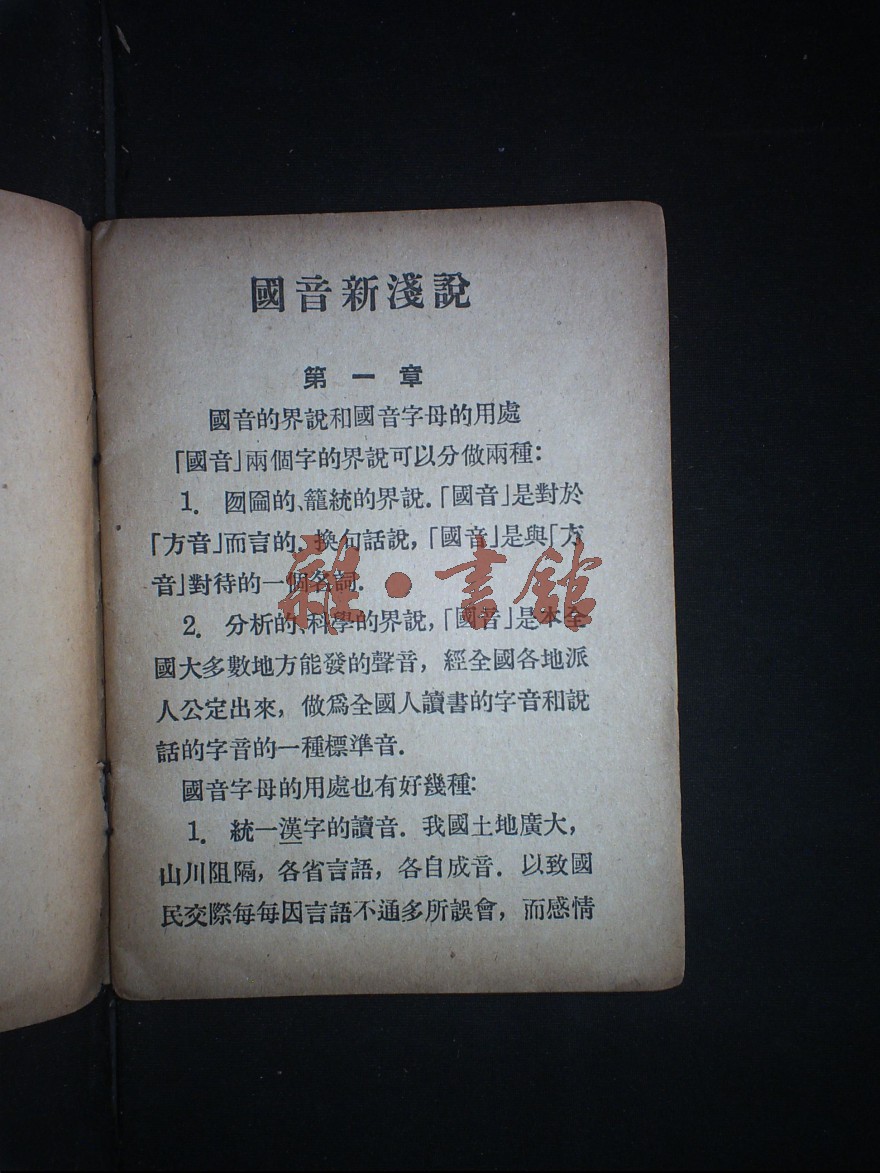 國音新淺說
第一章
國音的界說和國音字母的用處
「國音」兩個字的界說可以分做兩種：
1. 囫圇的、籠統的界說．「國音」是對於
「方音」而言的．換句話說，「國音」是與「方
音」對待的一個名詞．
2. 分析的、科學的界說，「國音」是本全
國大多數地方能發的聲音，經全國各地派
人公定出來，做爲全國人讀書的字音和說
話的字音的一種標準音．
國音字母的用處也有好幾種：
1. 統一漢字的讀音．我國土地廣大，
山川阻隔，各省言語，各自成音．以致國
民交際每每因言語不通多所誤會，而感情
雜·書館